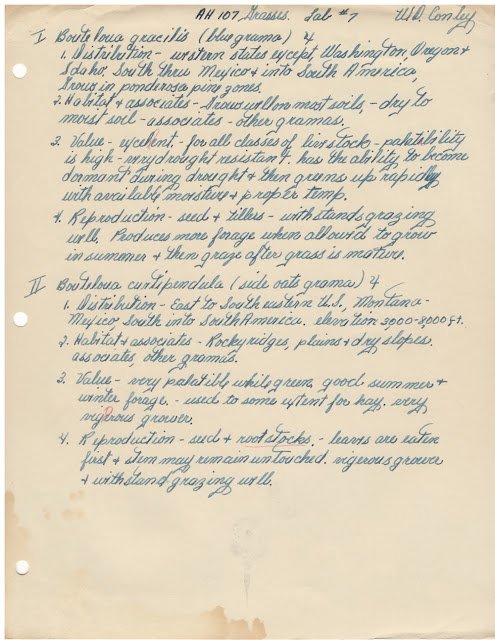 AH 107 Grasses. Lab #7 W.D. Conley
I Bouteloua gracilis (blue grama) 4
1. Distribution - western states except, Washington, Oregon &
Idaho, South thru Mexico & into South America,
Grows in ponderosa pine zones.
2. Habitat & associates - Grows well on most soils, - dry to
moist soil - associates - other gramas.
3. Value - excellent, - for all classes of livestock - palatibility
is high - very drought resistant. has the ability to become
dormant during drought & then greens up rapidly
with available moisture & proper temp.
4. Reproduction - seed & tillers - withstands grazing
well. Produces more forage when allowed to grow
in summer & then graze after grass is mature.
II Bouteloua curtipendula (side oats grama) 4
1. Distribution - East to South eastern U.S., Montana -
Mexico, South into South America. elevation 3000-8000 ft.
2. Habitat & associates - Rocky ridges, plains & dry slopes.
associates, other gramas.
3. Value - very palatible while green, good summer &
winter forage. - used to some extent for hay. very
vigerous grower.
4. Reproduction - seed & root stocks. - leaves are eaten
first & stem may remain untouched. vigerous grower
& withstand grazing well.